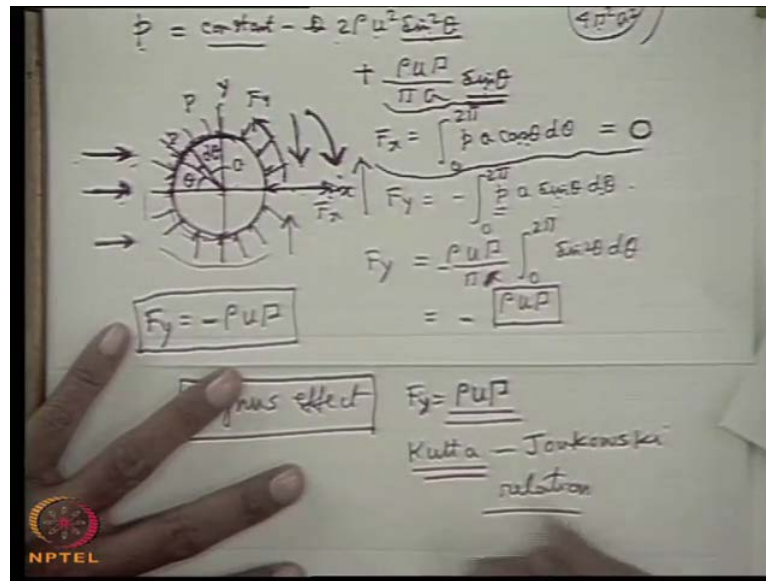 p = constant - 2ρu² sin²θ
4π²a²
+ ρuΓ / πa sinθ
y
P
Fy
P
dθ
θ
a
x
Fx
Fx = ∫₀^2π p a cosθ dθ = 0
Fy = - ∫₀^2π p a sinθ dθ.
Fy = - ρuΓ / π ∫₀^2π sin²θ dθ
Fy = - ρuΓ
= - ρuΓ
effect
Fy = ρuΓ
Kutta - Joukowski
relation
NPTEL